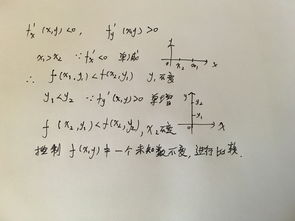 f'x(x,y)<0, f'y(x,y)>0
x₁>x₂ ∵f'x<0 单减
∴ f(x₁,y₁)<f(x₂,y₁) y₁不变
y₁<y₂ ∵f'y(x,y)>0 单增
f(x₂,y₁)<f(x₂,y₂), x₂不变
控制 f(x,y)中一个未知数不变,进行比较.
y
0 x₂ x₁ x
y
y₂
y₁
0 x